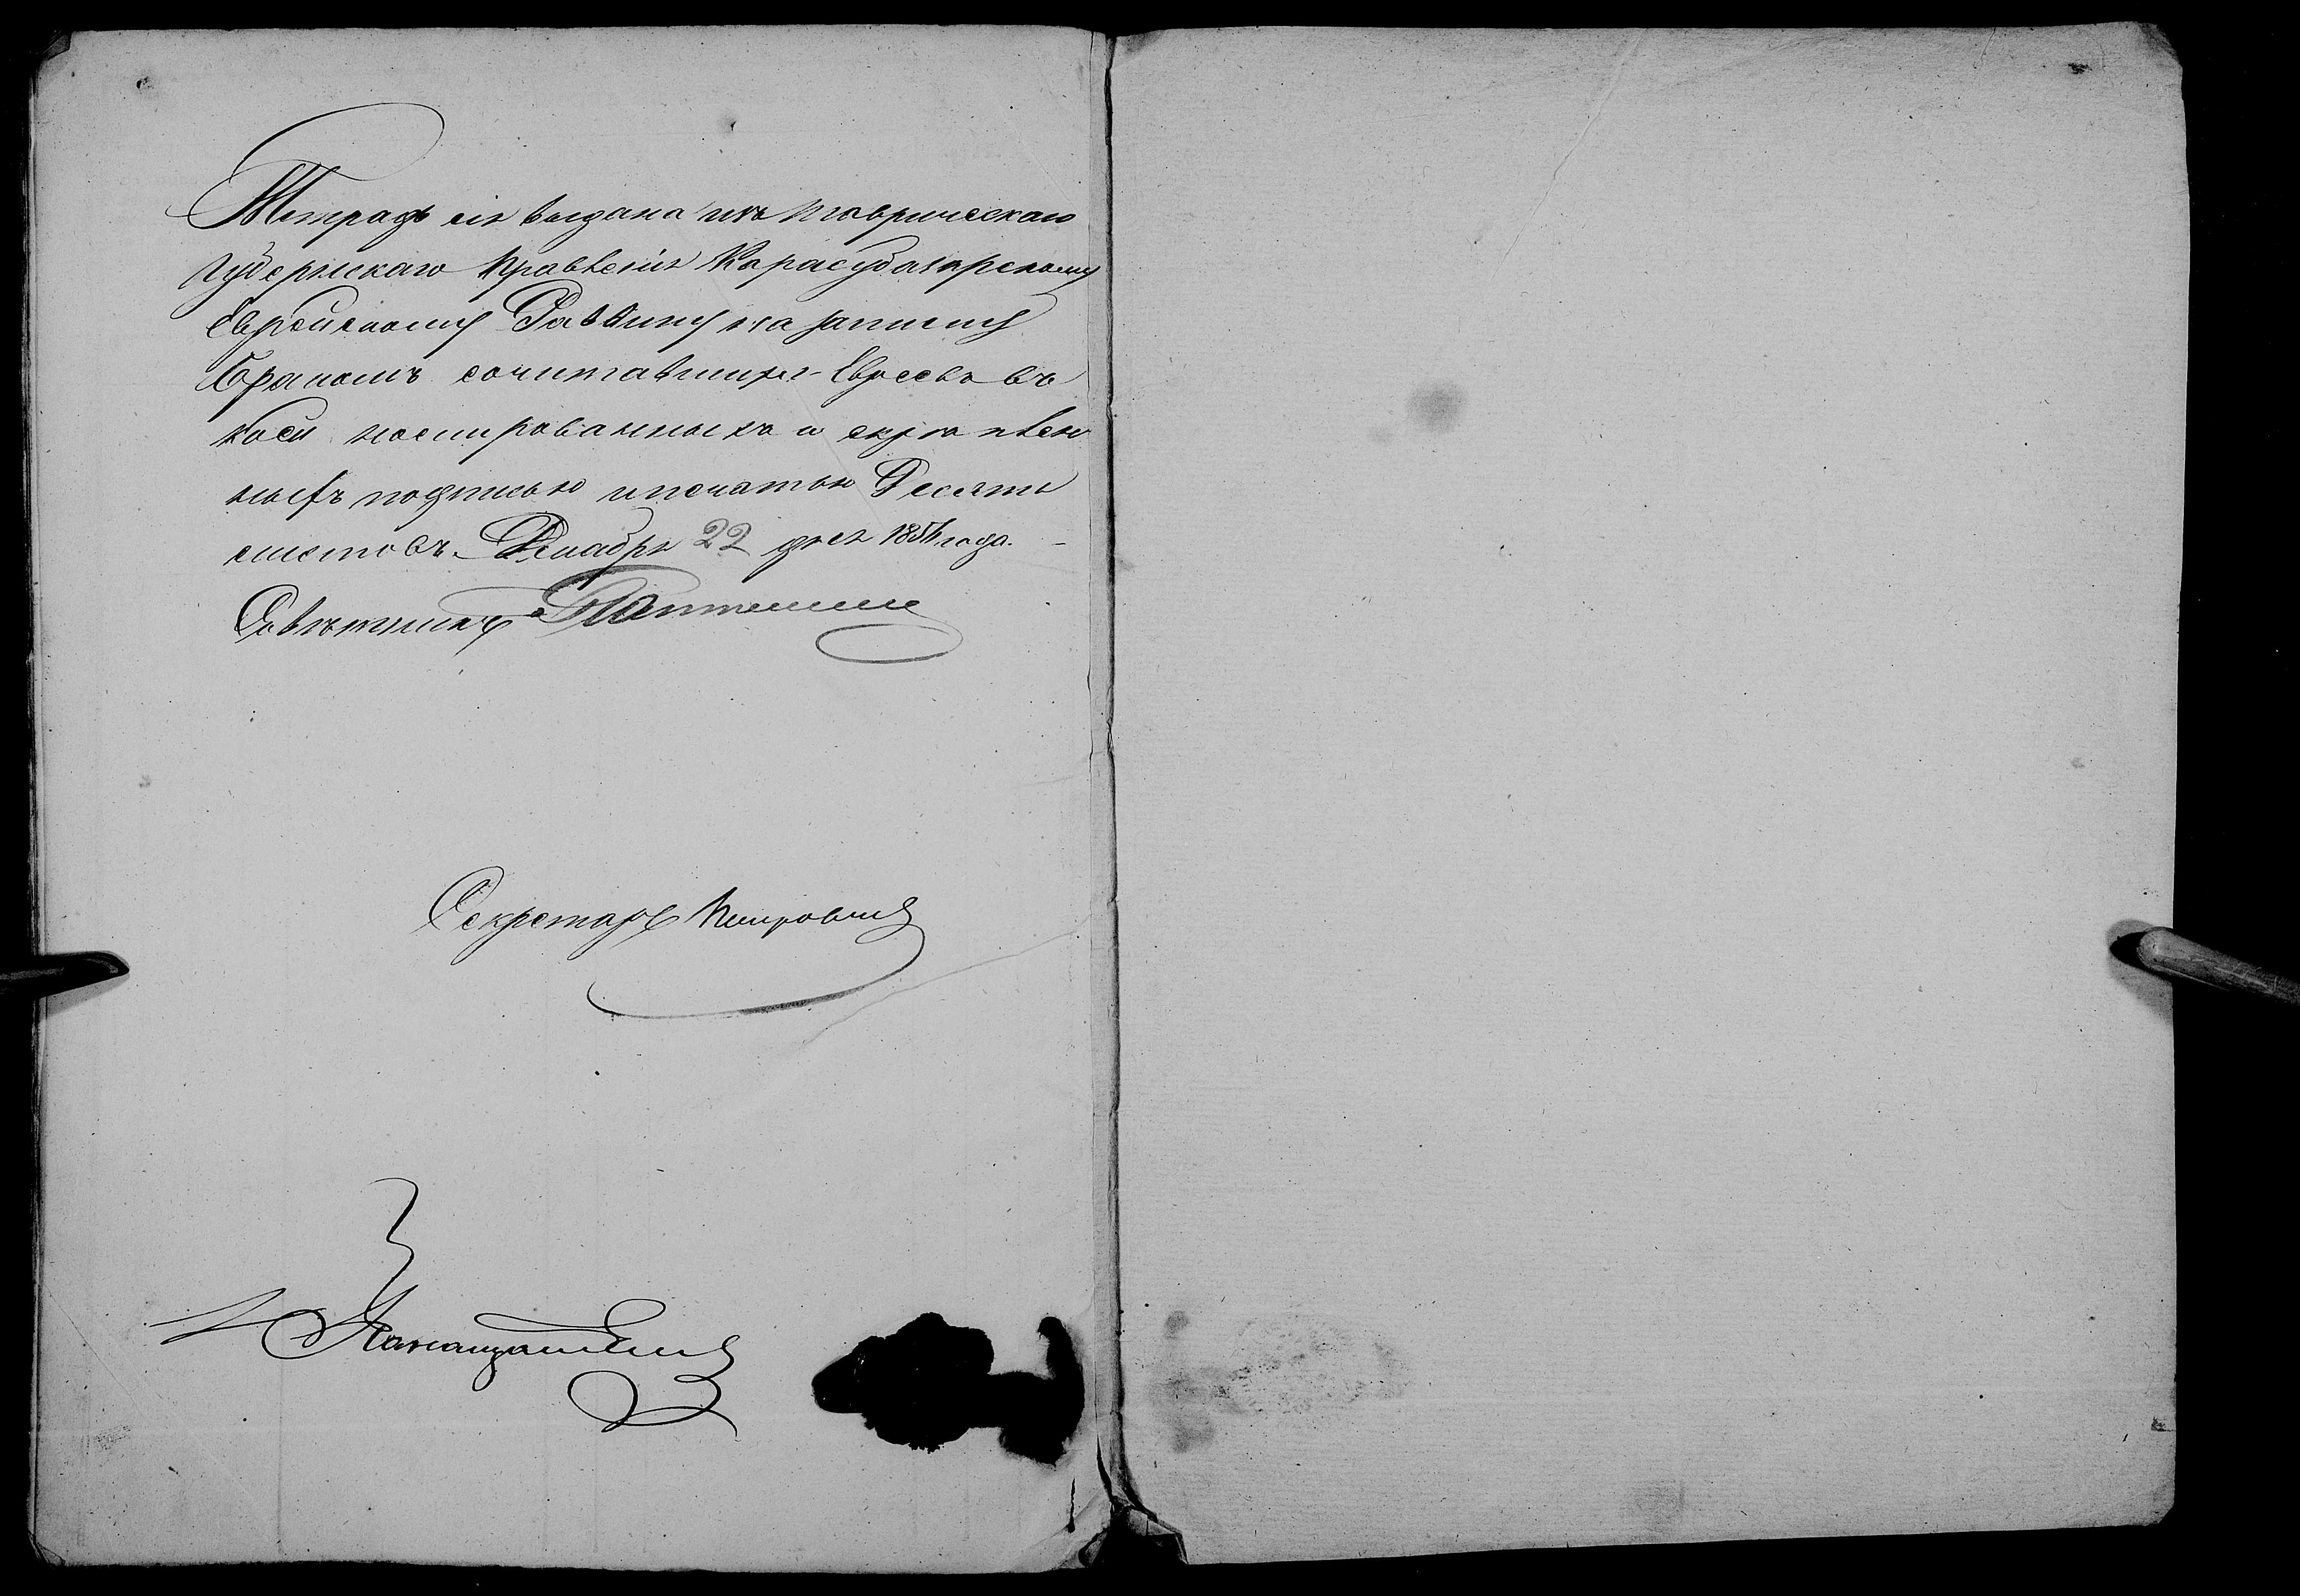 Тетрадь сія выдана изъ Таврическаго
Губернскаго Правленія Карасубазарскому
Еврейскому Раввину на записку
бракомъ сочитавшихся Евреевъ въ
коей нумерованныхъ и скрѣплен
ныхъ подписью и печатью Десять
листовъ. Декабря 22 дня года.
Совѣтникъ
Секретарь